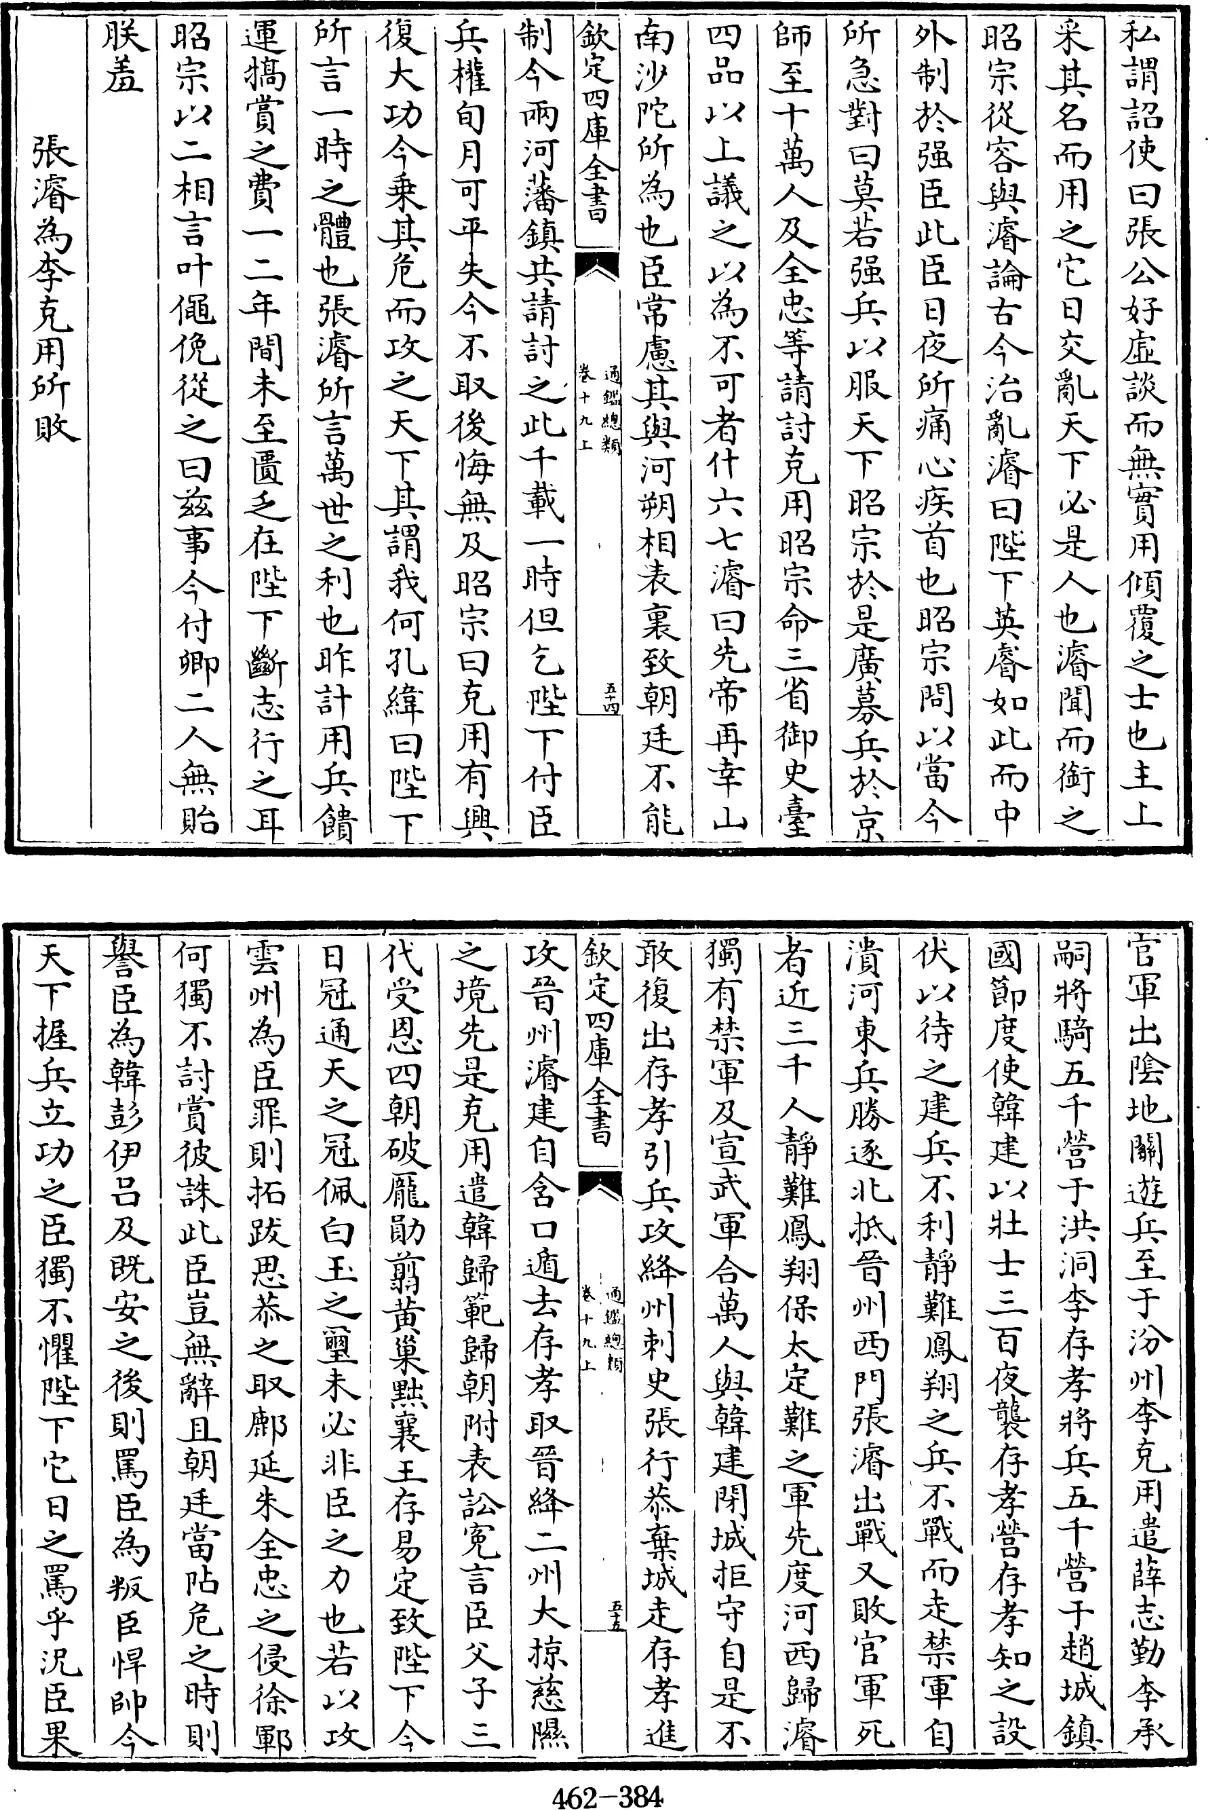 私謂詔使曰張公好虛談而無實用傾覆之士也主上
采其名而用之它日交亂天下必是人也濬聞而銜之
昭宗從容與濬論古今治亂濬曰陛下英睿如此而中
外制於强臣此臣日夜所痛心疾首也昭宗問以當今
所急對曰莫若强兵以服天下昭宗於是廣募兵於京
師至十萬人及全忠等請討克用昭宗命三省御史臺
四品以上議之以為不可者什六七濬曰先帝再幸山
南沙陀所為也臣常慮其與河朔相表裏致朝廷不能
欽定四庫全書
通鑑總類
卷十九上
五十四
制今兩河藩鎮共請討之此千載一時但乞陛下付臣
兵權旬月可平失今不取後悔無及昭宗曰克用有興
復大功今乗其危而攻之天下其謂我何孔緯曰陛下
所言一時之體也張濬所言萬世之利也昨計用兵饋
運犒賞之費一二年間未至匱乏在陛下斷志行之耳
昭宗以二相言叶僶俛從之曰兹事今付卿二人無貽
朕羞
張濬為李克用所敗
官軍出陰地關遊兵至于汾州李克用遣薛志勤李承
嗣將騎五千營于洪洞李存孝將兵五千營于趙城鎮
國節度使韓建以壯士三百夜襲存孝營存孝知之設
伏以待之建兵不利静難鳳翔之兵不戰而走禁軍自
潰河東兵勝逐北抵晉州西門張濬出戰又敗官軍死
者近三千人静難鳳翔保太定難之軍先度河西歸濬
獨有禁軍及宣武軍合萬人與韓建閉城拒守自是不
敢復出存孝引兵攻絳州刺史張行恭棄城走存孝進
欽定四庫全書
通鑑總類
卷十九上
五十五
攻晉州濬建自含口遁去存孝取晉絳二州大掠慈隰
之境先是克用遣韓歸範歸朝附表訟寃言臣父子三
代受恩四朝破龎勛翦黄巢黜襄王存易定致陛下今
日冠通天之冠佩白玉之璽未必非臣之力也若以攻
雲州為臣罪則拓跋思恭之取鄜延朱全忠之侵徐鄆
何獨不討賞彼誅此臣豈無辭且朝廷當阽危之時則
譽臣為韓彭伊吕及既安之後則罵臣為叛臣悍帥今
天下握兵立功之臣獨不懼陛下它日之罵乎況臣果
462-384